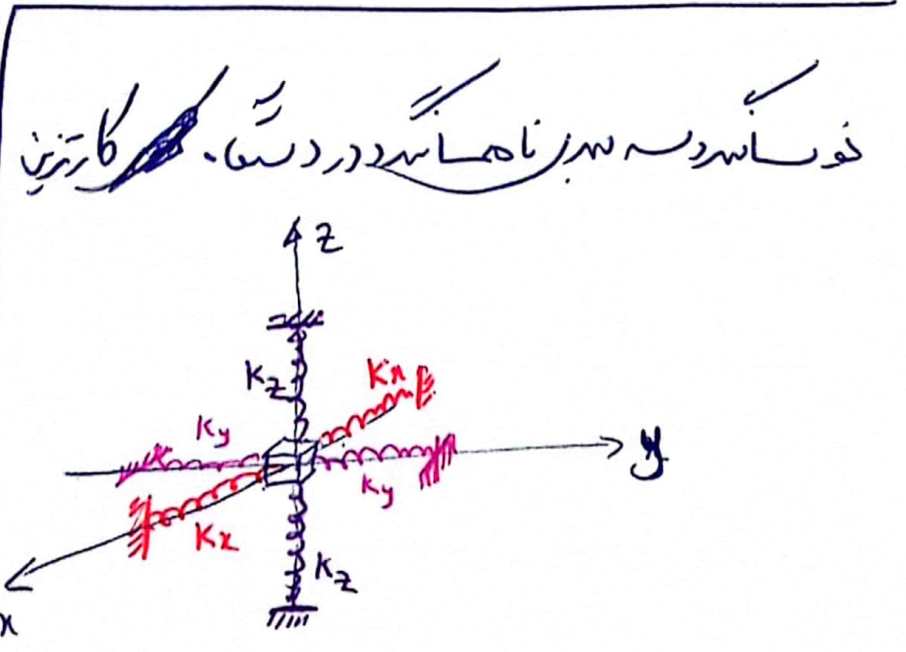 نوسانگر سه بعدی ناهمسانگرد در دستگاه کارتزین
z
Kz
Kx
Ky
y
Ky
Kx
Kz
x